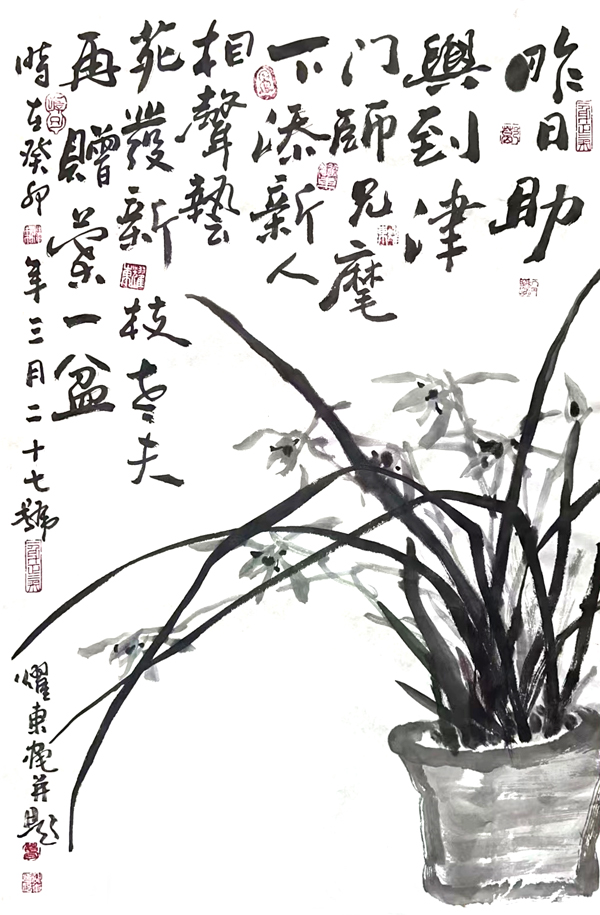 昨日助
興到津
门師兄麾
下添新人
相聲藝
苑發新枝老夫
再贈蘭一盆
時在癸卯年三月二十七號
耀東并題